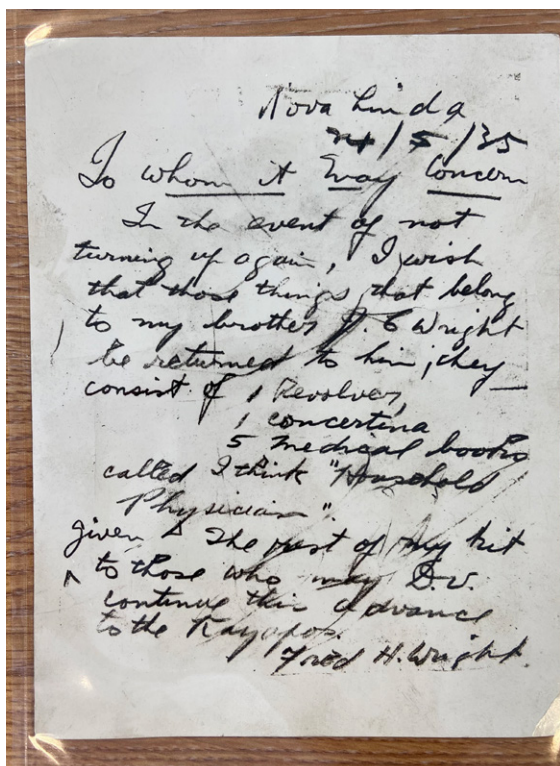 Nova Linda
/5/35
To whom it may Concern
In the event of not
turning up again, I wish
that those things that belong
to my brother J. C Wright
be returned to him; they
consist of 1 Revolver,
1 concertina
5 medical books
called I think "Household
Physician".
given The rest of my kit
^ to those who may D.V.
continue this advance
to the Kayapos.
Fred H. Wright.